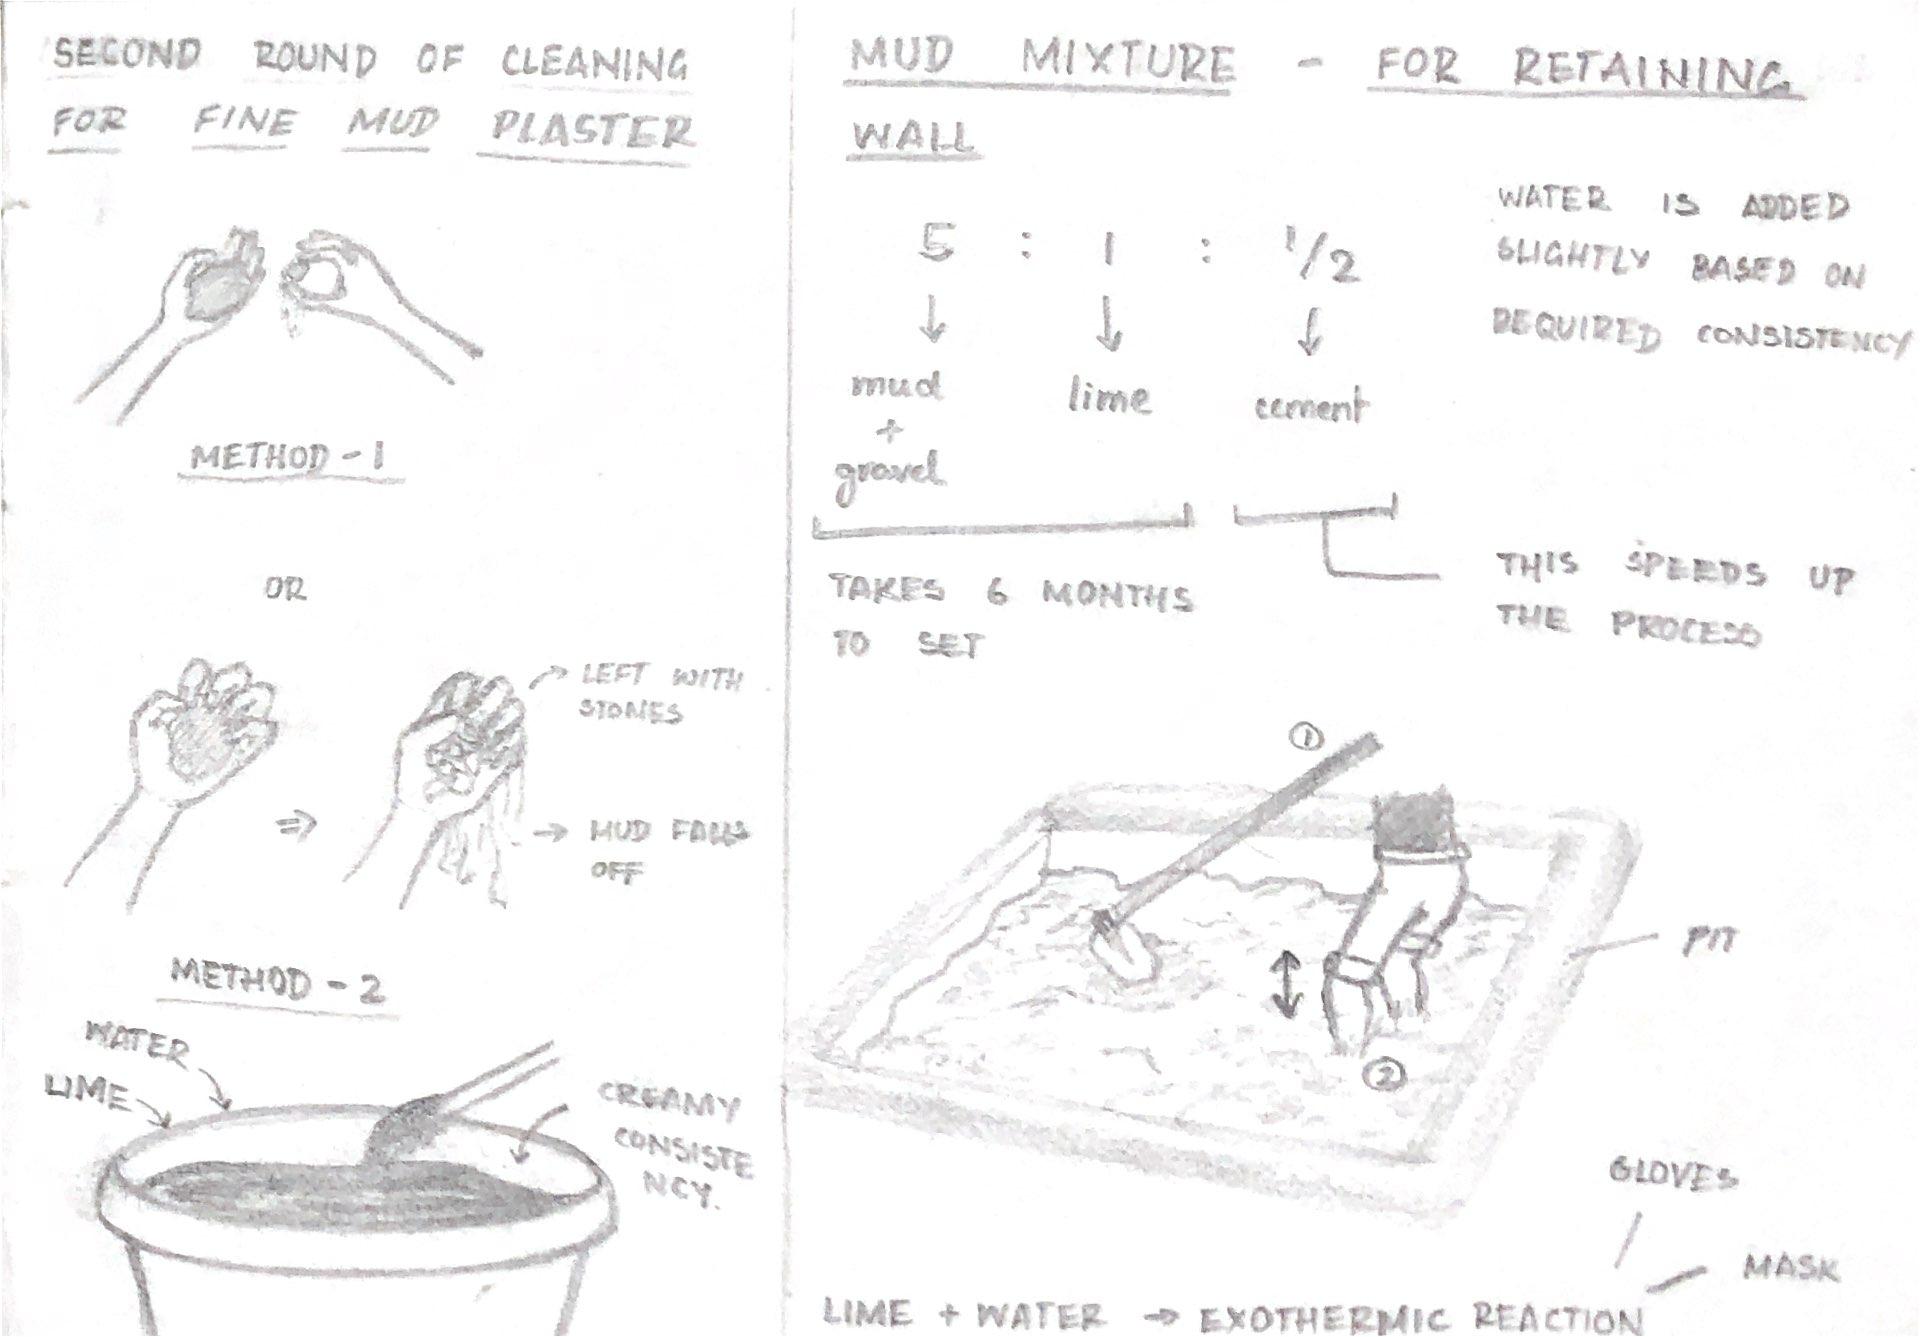 SECOND ROUND OF CLEANING
FOR FINE MUD PLASTER
METHOD - 1
OR
LEFT WITH
STONES
MUD FALLS
OFF
METHOD - 2
WATER
LIME
CREAMY
CONSISTE
NCY.
MUD MIXTURE - FOR RETAINING
WALL
5 : 1 : 1/2
mud
+
gravel
lime
cement
WATER IS ADDED
SLIGHTLY BASED ON
REQUIRED CONSISTENCY
TAKES 6 MONTHS
TO SET
THIS SPEEDS UP
THE PROCESS
①
②
PIT
GLOVES
MASK
LIME + WATER → EXOTHERMIC REACTION